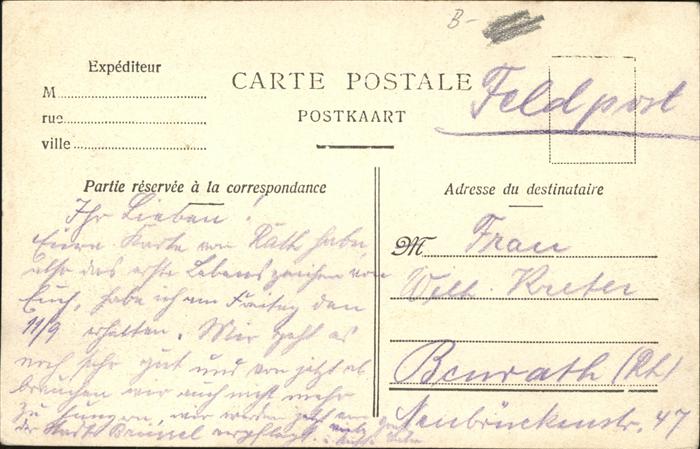 B-
Expéditeur
M
rue
ville
CARTE POSTALE
POSTKAART
Feldpost
Partie réservée à la correspondance
Ihr Lieben!
Eure Karte von Rath habe,
also das erste Lebenszeichen von
Euch, habe ich am Freitag den
11/9 erhalten. Mir geht es
noch sehr gut und von jetzt ab
brauchen wir auch nicht mehr
zu hungern, wir werden jetzt von
der Stadt Brüssel verpflegt.
Adresse du destinataire
M Frau
Wilh. Kreter
Benrath (Rh)
Neubrückenstr. 47